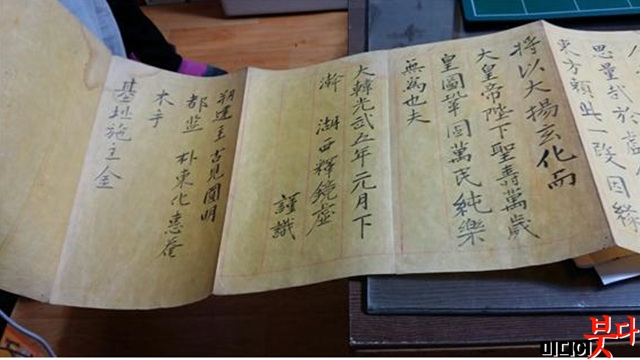 思量哉於舊
東方須此一段因緣
將以大揚玄化而
大皇帝陛下聖壽萬歲
皇圖鞏固萬民純樂
無爲也夫
大韓光武五年元月下
澣 湖西釋鏡虛
謹識
建主古見圓明
都監 朴東化惠菴
木手
基址施主金
미디어붓다